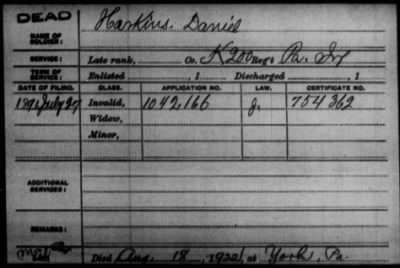 DEAD
NAME OF SOLDIER: Harkins, Daniel
SERVICE: Late rank, Co. K 200 Reg't Pa. Inf
TERM OF SERVICE: Enlisted , 1 Discharged , 1
DATE OF FILING. CLASS. APPLICATION NO. LAW. CERTIFICATE NO.
1891 July 27 Invalid, 1042,166 J. 754362
Widow,
Minor,
ADDITIONAL SERVICES:
REMARKS:
Died Aug. 18, 1922, at York, Pa.